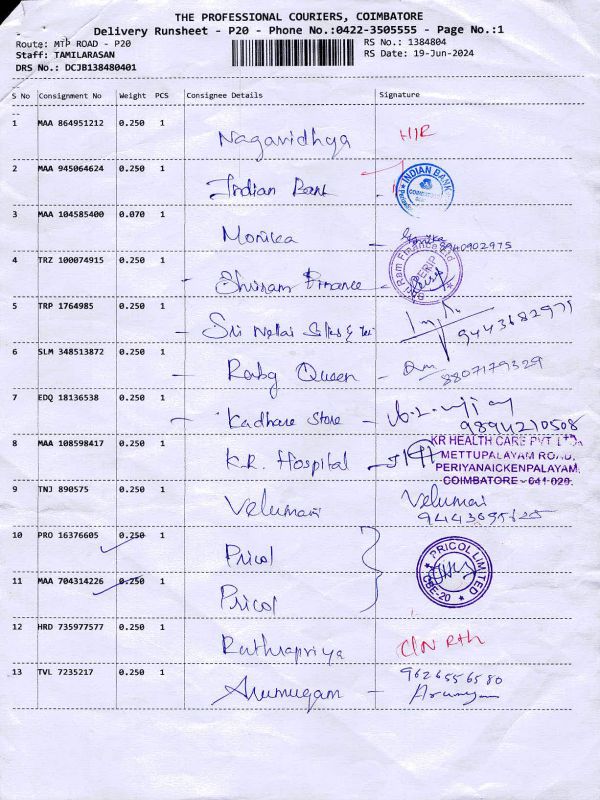 THE PROFESSIONAL COURIERS, COIMBATORE
Delivery Runsheet - P20 - Phone No.:0422-3505555 - Page No.:1
Route: MTP ROAD - P20
RS No.: 1384804
Staff: TAMILARASAN
RS Date: 19-Jun-2024
DRS No.: DCJB138480401
S No Consignment No Weight PCS Consignee Details Signature
1 MAA 864951212 0.250 1 Nagavidhya
2 MAA 945064624 0.250 1 Indian Bank INDIAN BANK
3 MAA 104585400 0.070 1 Monika 8940902975
4 TRZ 100074915 0.250 1 Shriram Finance Sri Ram Finance Ltd
5 TRP 1764985 0.250 1 Sri Nellai Silks &
6 SLM 348513872 0.250 1 Baby Queen 8807179329
7 EDQ 18136538 0.250 1 Kadhare Store 9894210508
8 MAA 108598417 0.250 1 K.R. Hospital
KR HEALTH CARE PVT LTD.
METTUPALAYAM ROAD,
PERIYANAICKENPALAYAM,
COIMBATORE - 641 020.
9 TNJ 890575 0.250 1 Velumani Velumani
10 PRO 16376605 0.250 1 Pricol
PRICOL LIMITED
CBE-20
11 MAA 704314226 0.250 1 Pricol
12 HRD 735977577 0.250 1 Ruthrapriya
13 TVL 7235217 0.250 1 Arumugam 9626556580
Arumugam